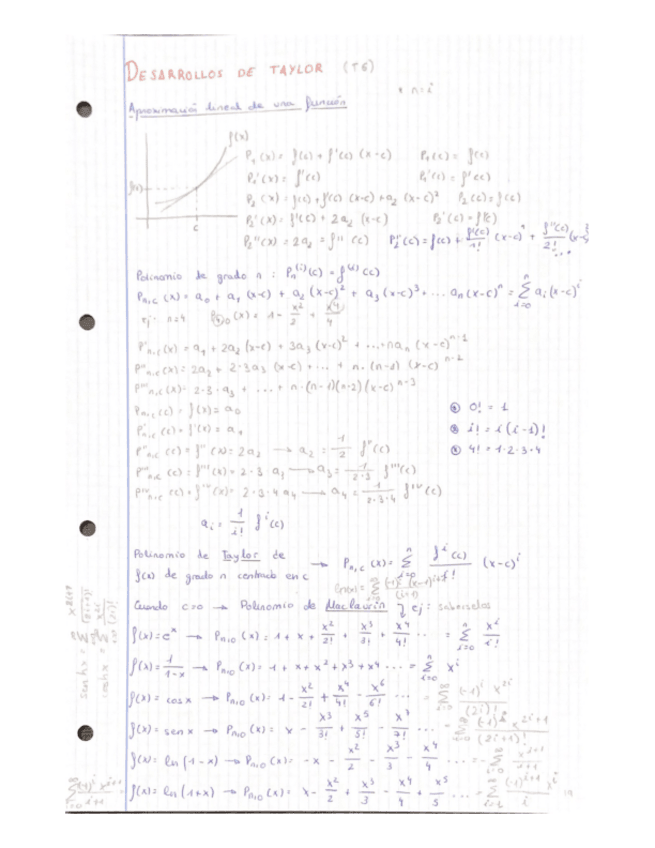 DESARROLLOS DE TAYLOR (T6)
* n=i
Aproximación lineal de una función
f(x)
P₁(x) = f(c) + f'(c) (x-c) P₁(c) = f(c)
P₁'(x) = f'(c) P₁'(c) = f'(c)
f(c)
P₂(x) = f(c) + f'(c) (x-c) + a₂ (x-c)² P₂(c) = f(c)
P₂'(x) = f'(c) + 2a₂ (x-c) P₂'(c) = f'(c)
c
P₂''(x) = 2a₂ = f''(c) P₂''(c) = f(c) + f'(c)/1! (x-c)¹ + f''(c)/2! (x-c)² ...
Polinomio de grado n : Pₙ⁽ⁱ⁾(c) = f⁽ⁱ⁾(c)
Pₙ,c (x) = a₀ + a₁ (x-c) + a₂ (x-c)² + a₃ (x-c)³ + ... aₙ (x-c)ⁿ = Σᵢ₌₀ⁿ aᵢ (x-c)ⁱ
ej: n=4 P₄,₀ (x) = 1 - x²/2 + x⁴/4
P'ₙ,c (x) = a₁ + 2a₂ (x-c) + 3a₃ (x-c)² + ... + naₙ (x-c)ⁿ⁻¹
P''ₙ,c (x) = 2a₂ + 2·3a₃ (x-c) + ... + n·(n-1) (x-c)ⁿ⁻²
P'''ₙ,c (x) = 2·3·a₃ + ... + n·(n-1)(n-2) (x-c)ⁿ⁻³
Pₙ,c (c) = f(x) = a₀
* 0! = 1
P'ₙ,c (c) = f'(x) = a₁
* i! = i (i-1)!
P''ₙ,c (c) = f''(x) = 2a₂ → a₂ = 1/2 f''(c)
* 4! = 1·2·3·4
P'''ₙ,c (c) = f'''(x) = 2·3 a₃ → a₃ = 1/2·3 f'''(c)
Pᴵⱽₙ,c (c) = fᴵⱽ(x) = 2·3·4 a₄ → a₄ = 1/2·3·4 fᴵⱽ(c)
aᵢ = 1/i! fⁱ(c)
Polinomio de Taylor de
f(x) de grado n centrado en c
→ Pₙ,c (x) = Σᵢ₌₀ⁿ fⁱ(c)/i! (x-c)ⁱ
Cuando c=0 → Polinomio de Maclaurin
f(x) = eˣ → Pₙ,₀ (x) = 1 + x + x²/2! + x³/3! + x⁴/4! ... = Σᵢ₌₀ⁿ xⁱ/i!
f(x) = 1/1-x → Pₙ,₀ (x) = 1 + x + x² + x³ + x⁴ ... = Σᵢ₌₀ⁿ xⁱ
f(x) = cos x → Pₙ,₀ (x) = 1 - x²/2! + x⁴/4! - x⁶/6! ... = Σ (-1)ⁱ x²ⁱ/(2i)!
f(x) = sen x → Pₙ,₀ (x) = x - x³/3! + x⁵/5! - x⁷/7! ... = Σ (-1)ⁱ x²ⁱ⁺¹/(2i+1)!
f(x) = ln(1-x) → Pₙ,₀ (x) = -x - x²/2 - x³/3 - x⁴/4 ... = -Σ xⁱ⁺¹/i+1
f(x) = ln(1+x) → Pₙ,₀ (x) = x - x²/2 + x³/3 - x⁴/4 + x⁵/5 ... = Σ (-1)ⁱ⁺¹/i xⁱ
senh x = Σ x²ⁱ⁺¹/(2i+1)!
cosh x = Σ x²ⁱ/(2i)!
Σ (-1)ⁱ xⁱ⁺¹/i+1